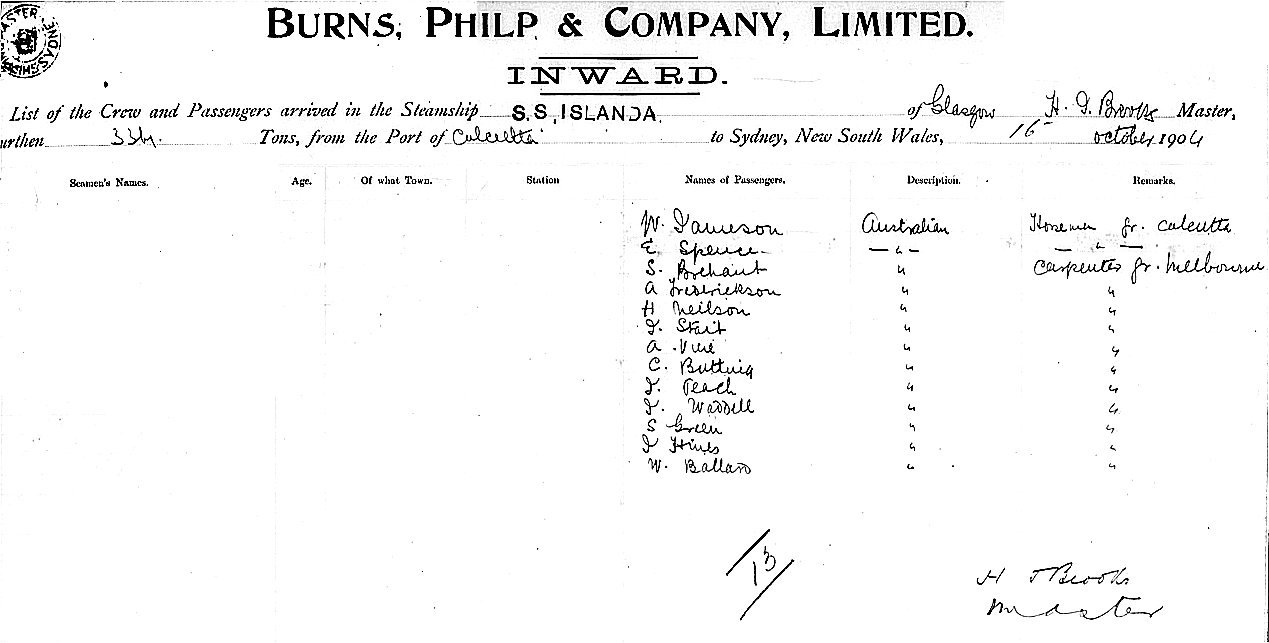 BURNS, PHILP & COMPANY, LIMITED.
INWARD.
List of the Crew and Passengers arrived in the Steamship S.S. ISLANDA. of Glasgow H. J. Brooks Master,
urthen Tons, from the Port of Calcutta to Sydney, New South Wales, 16 October 1904
Seamen's Names. Age. Of what Town. Station Names of Passengers. Description. Remarks.
W. Jameson Australian Horsemen fr. Calcutta
E. Spence — " — — " —
S. " Carpenter fr. Melbourne
A Frederickson " "
H Neilson " "
J. Stait " "
A. " "
C. Buttwig " "
J. Peach " "
J. Waddell " "
S Green " "
J Hines " "
W. Ballard " "
13
H J Brooks
Master